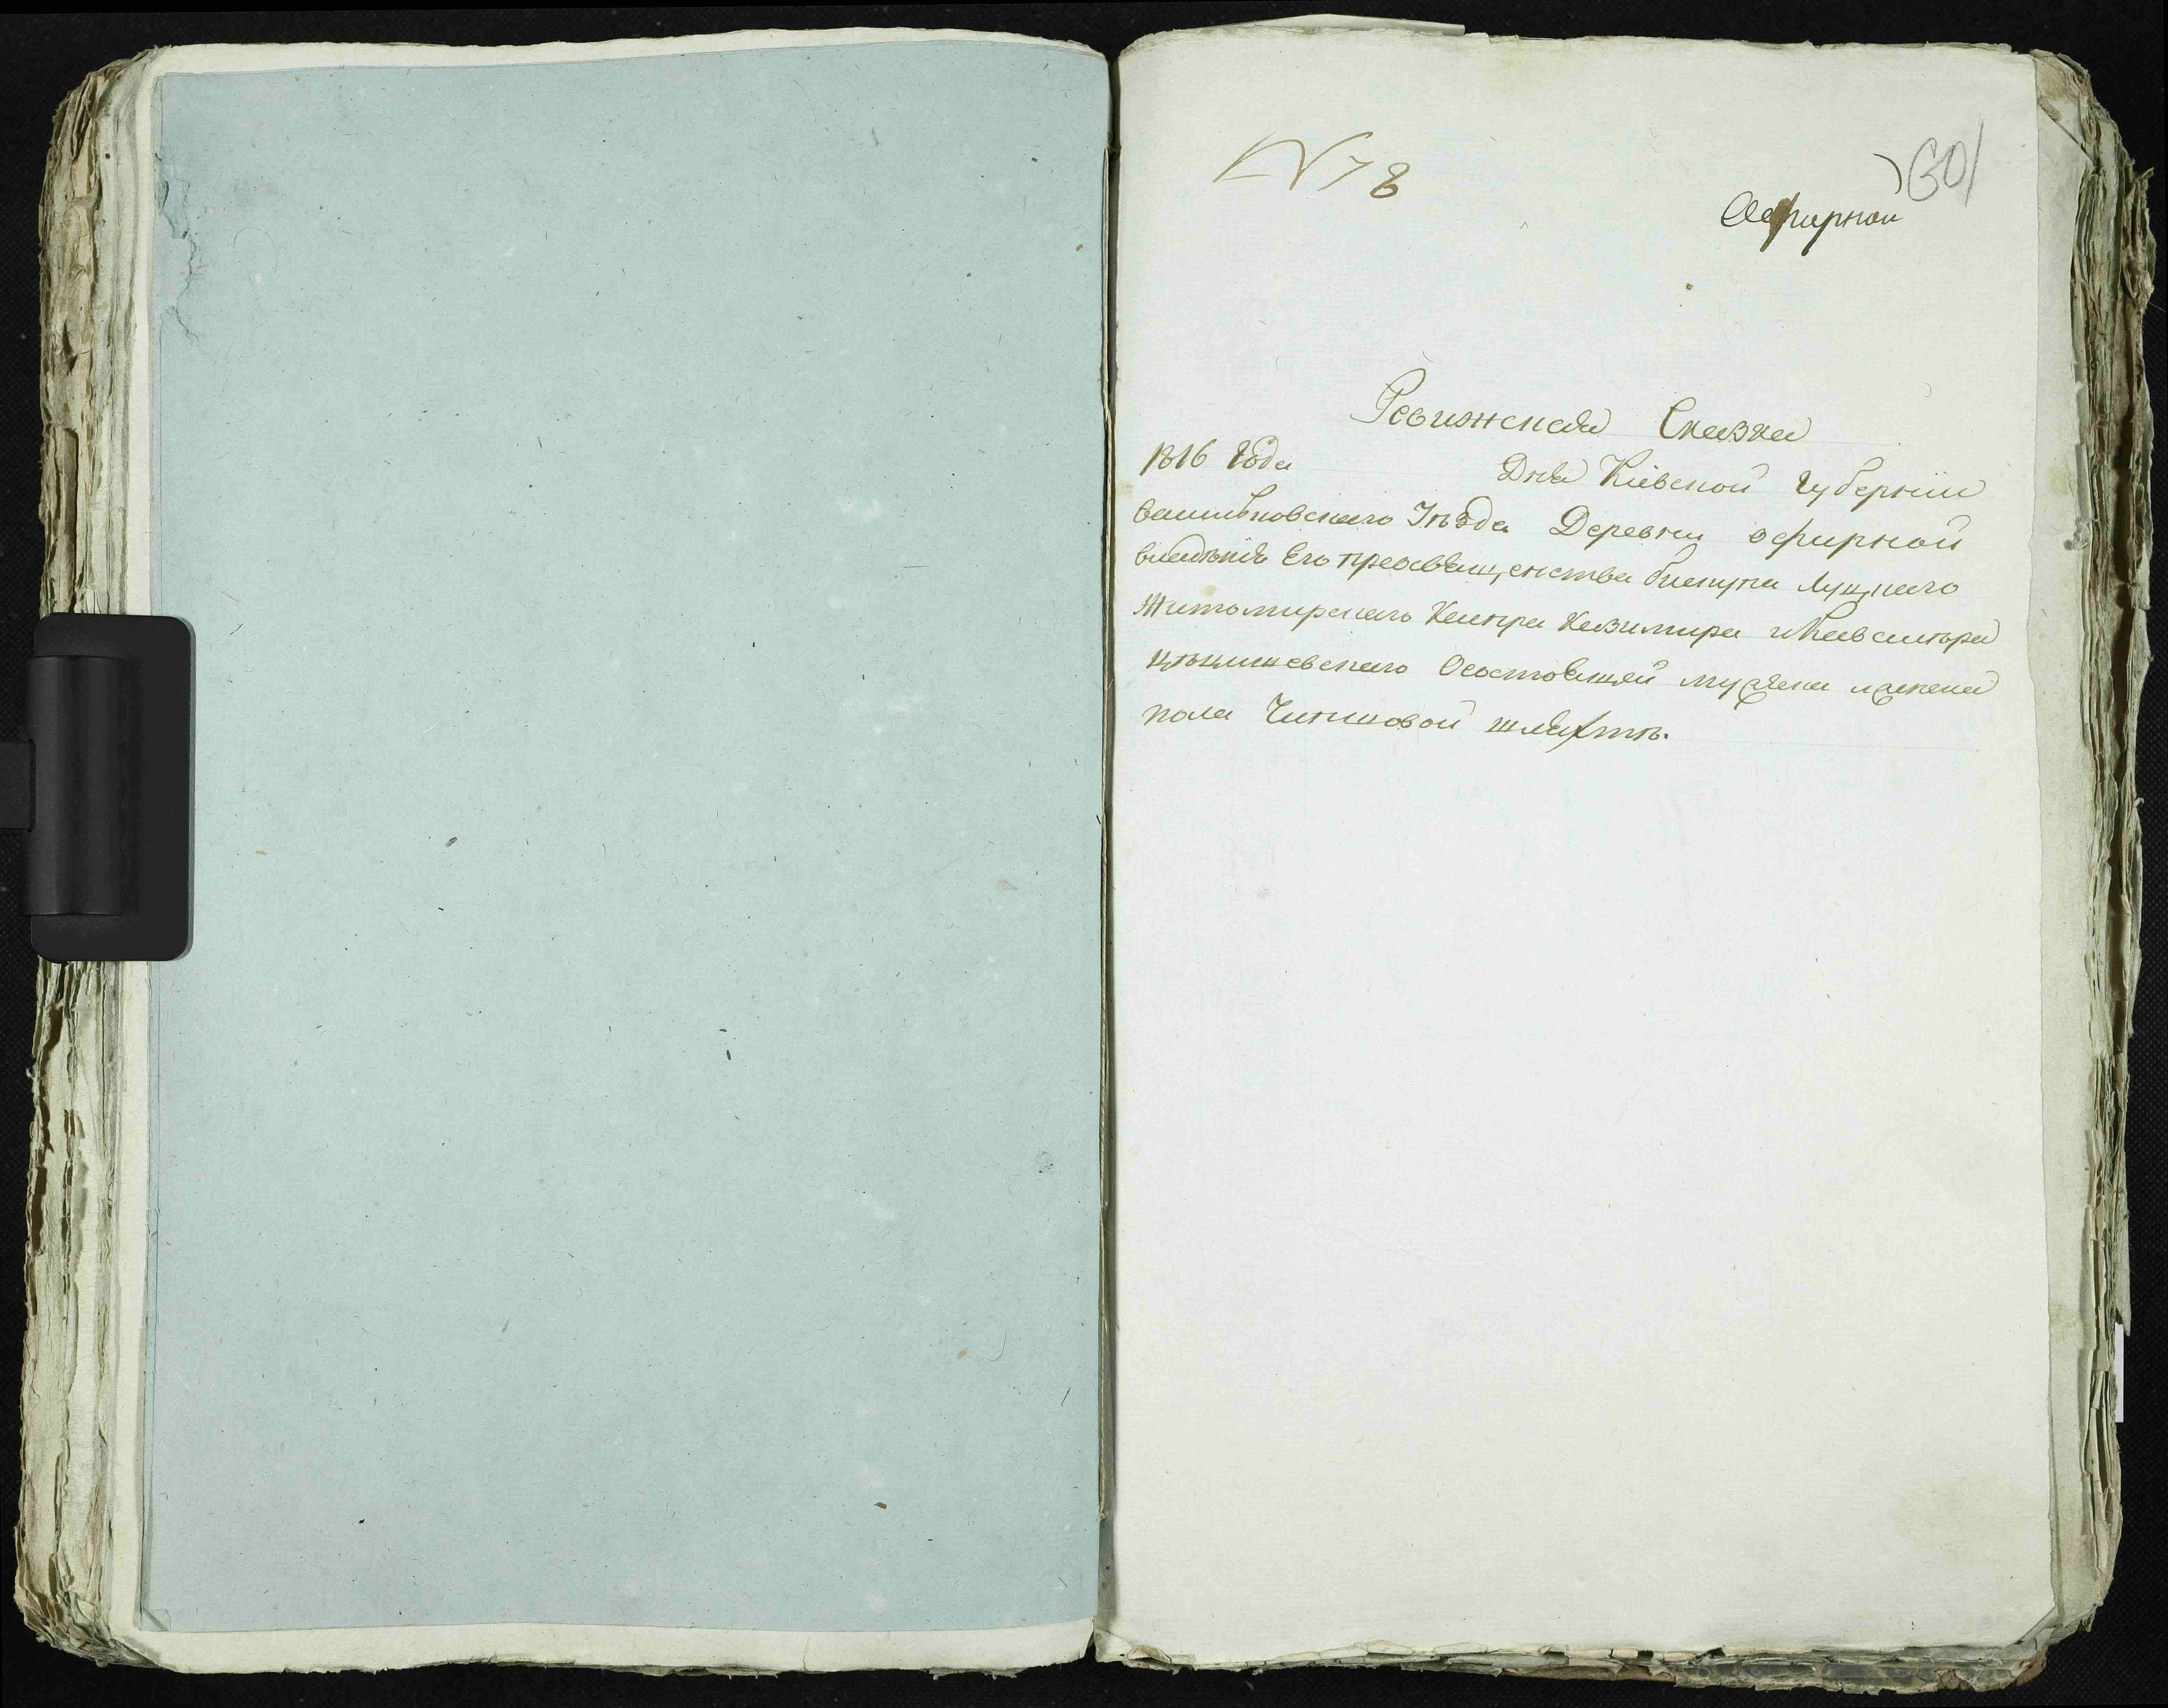 N 78
601
Офирной
Ревижская Сказка
1816 Года Дня Кіевской Губерніи
васильковского Уѣзда Деревни офирной
владѣнія Его преосвященства бискупа луцкого
Житомирского Каспра Казимира
Цѣцишевского Осостоящей муска и женска
пола Чиншовой шляхтѣ.